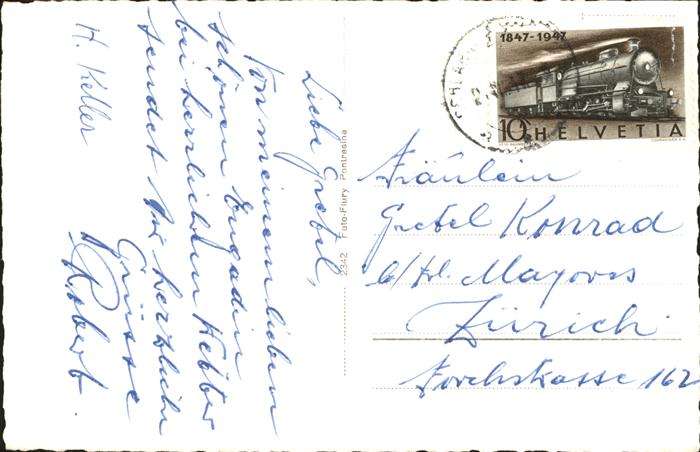 Liebe Gretel,
Von meinem lieben
schönen Engadin
bei herrlichem Wetter
sendet Dir herzliche
Grüsse
Robert.
H. Keller
2342 Foto-Flury Pontresina
1847-1947
10 HELVETIA
Fräulein
Gretel Konrad
b/Hr. Mayores
Zürich
Forchstrasse 162